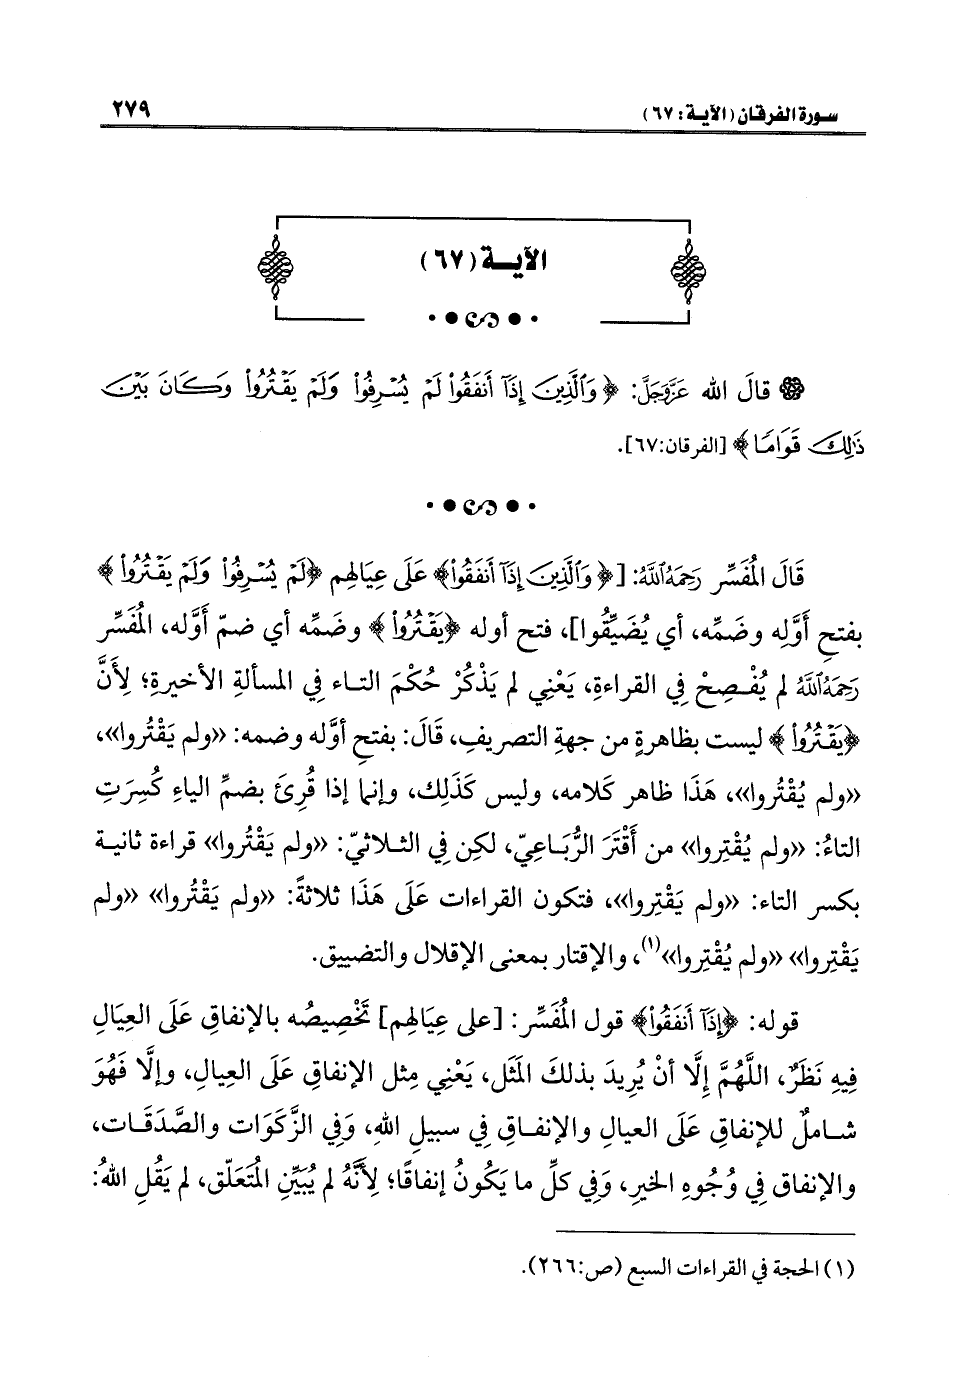 سورة الفرقان (الآية: ٦٧)
٢٧٩
الآية (٦٧)
قالَ الله عَزَّوَجَلَّ: ﴿وَٱلَّذِينَ إِذَآ أَنفَقُوا۟ لَمْ يُسْرِفُوا۟ وَلَمْ يَقْتُرُوا۟ وَكَانَ بَيْنَ
ذَٰلِكَ قَوَامًا﴾ [الفرقان:٦٧].
قَالَ المُفَسِّر رَحِمَهُ ٱللَّهُ: [﴿وَٱلَّذِينَ إِذَآ أَنفَقُوا۟﴾ عَلَى عِيَالِهِم ﴿لَمْ يُسْرِفُوا۟ وَلَمْ يَقْتُرُوا۟﴾
بفتحِ أوَّلِه وضَمِّه، أي يُضَيِّقُوا]، فتح أوله ﴿يَقْتُرُوا۟﴾ وضَمِّه أي ضمّ أوَّله، المُفَسِّر
رَحِمَهُ ٱللَّهُ لم يُفْصِحْ فِي القراءةِ، يَعْنِي لم يَذْكُرْ حُكْمَ التاء فِي المسألةِ الأخيرةِ؛ لِأَنَّ
﴿يَقْتُرُوا۟﴾ ليست بظاهرةٍ من جهةِ التصريفِ، قَالَ: بفتحِ أوَّله وضمه: «ولم يَقْتُروا»،
«ولم يُقْتُروا»، هَذَا ظاهر كَلامه، وليس كَذَلِك، وإنما إذا قُرِئَ بضمِّ الياءِ كُسِرَتِ
التاءُ: «ولم يُقْتِروا» من أَقْتَرَ الرُّبَاعِيّ، لكِن فِي الثلاثيّ: «ولم يَقْتُروا» قراءة ثانية
بكسر التاء: «ولم يَقْتِروا»، فتكون القراءات عَلَى هَذَا ثلاثةً: «ولم يَقْتُروا» «ولم
يَقْتِروا» «ولم يُقْتِروا»(١)، والإقتار بمعنى الإقلال والتضييق.
قوله: ﴿إِذَآ أَنفَقُوا۟﴾ قول المُفَسِّر: [على عِيَالِهم] تَخْصِيصُه بالإنفاقِ عَلَى العِيَالِ
فِيهِ نَظَرٌ، اللَّهُمَّ إِلَّا أنْ يُرِيدَ بذلكَ المَثَل، يَعْنِي مِثل الإنفاقِ عَلَى العِيالِ، وإلَّا فَهُوَ
شاملٌ للإنفاقِ عَلَى العيالِ والإنفاقِ فِي سبيلِ اللهِ، وَفِي الزَّكَوَات والصَّدَقَات،
والإنفاق فِي وُجُوهِ الخيرِ، وَفِي كلِّ ما يَكُونُ إنفاقًا؛ لِأَنَّهُ لم يُبَيِّنِ المُتَعَلّق، لم يَقُلِ اللهُ:
(١) الحجة في القراءات السبع (ص:٢٦٦).